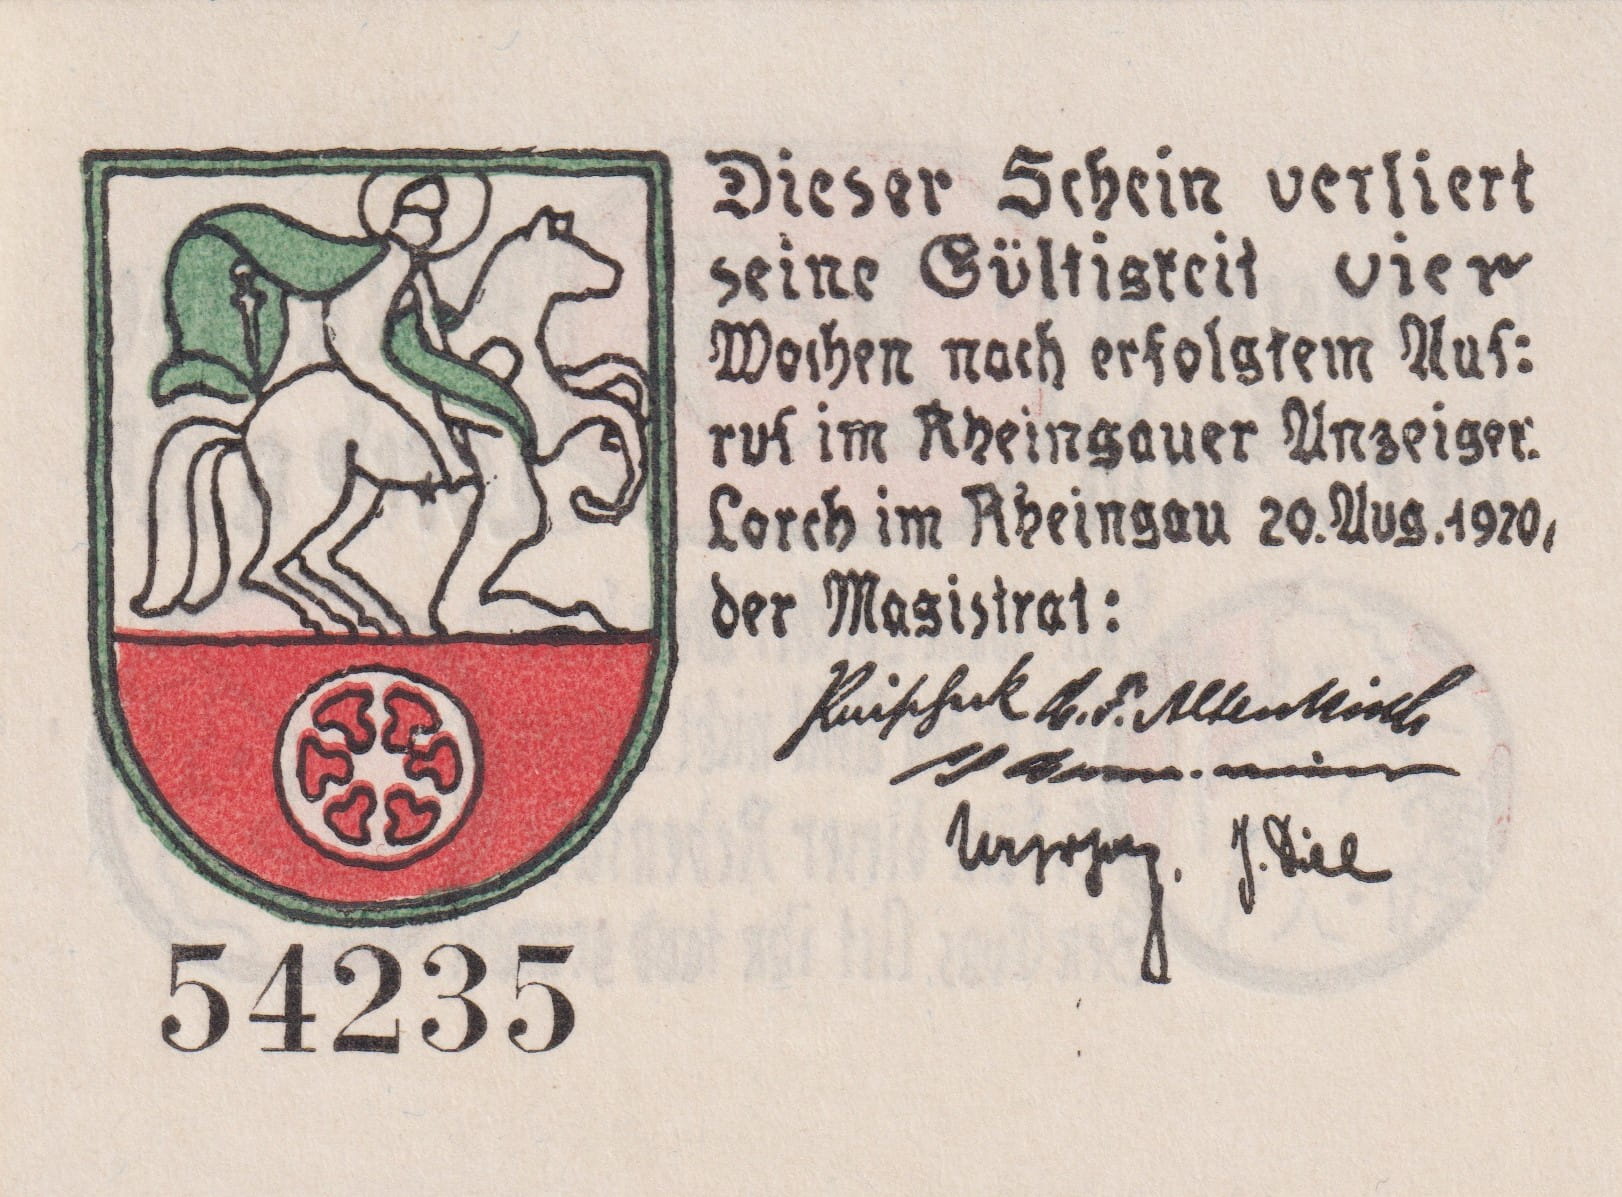 Dieser Schein verliert
seine Gültigkeit vier
Wochen nach erfolgtem Auf:
ruf im Rheingauer Anzeiger.
Lorch im Rheingau 20. Aug. 1920,
der Magistrat:
Altenkirch
J. Dill
54235